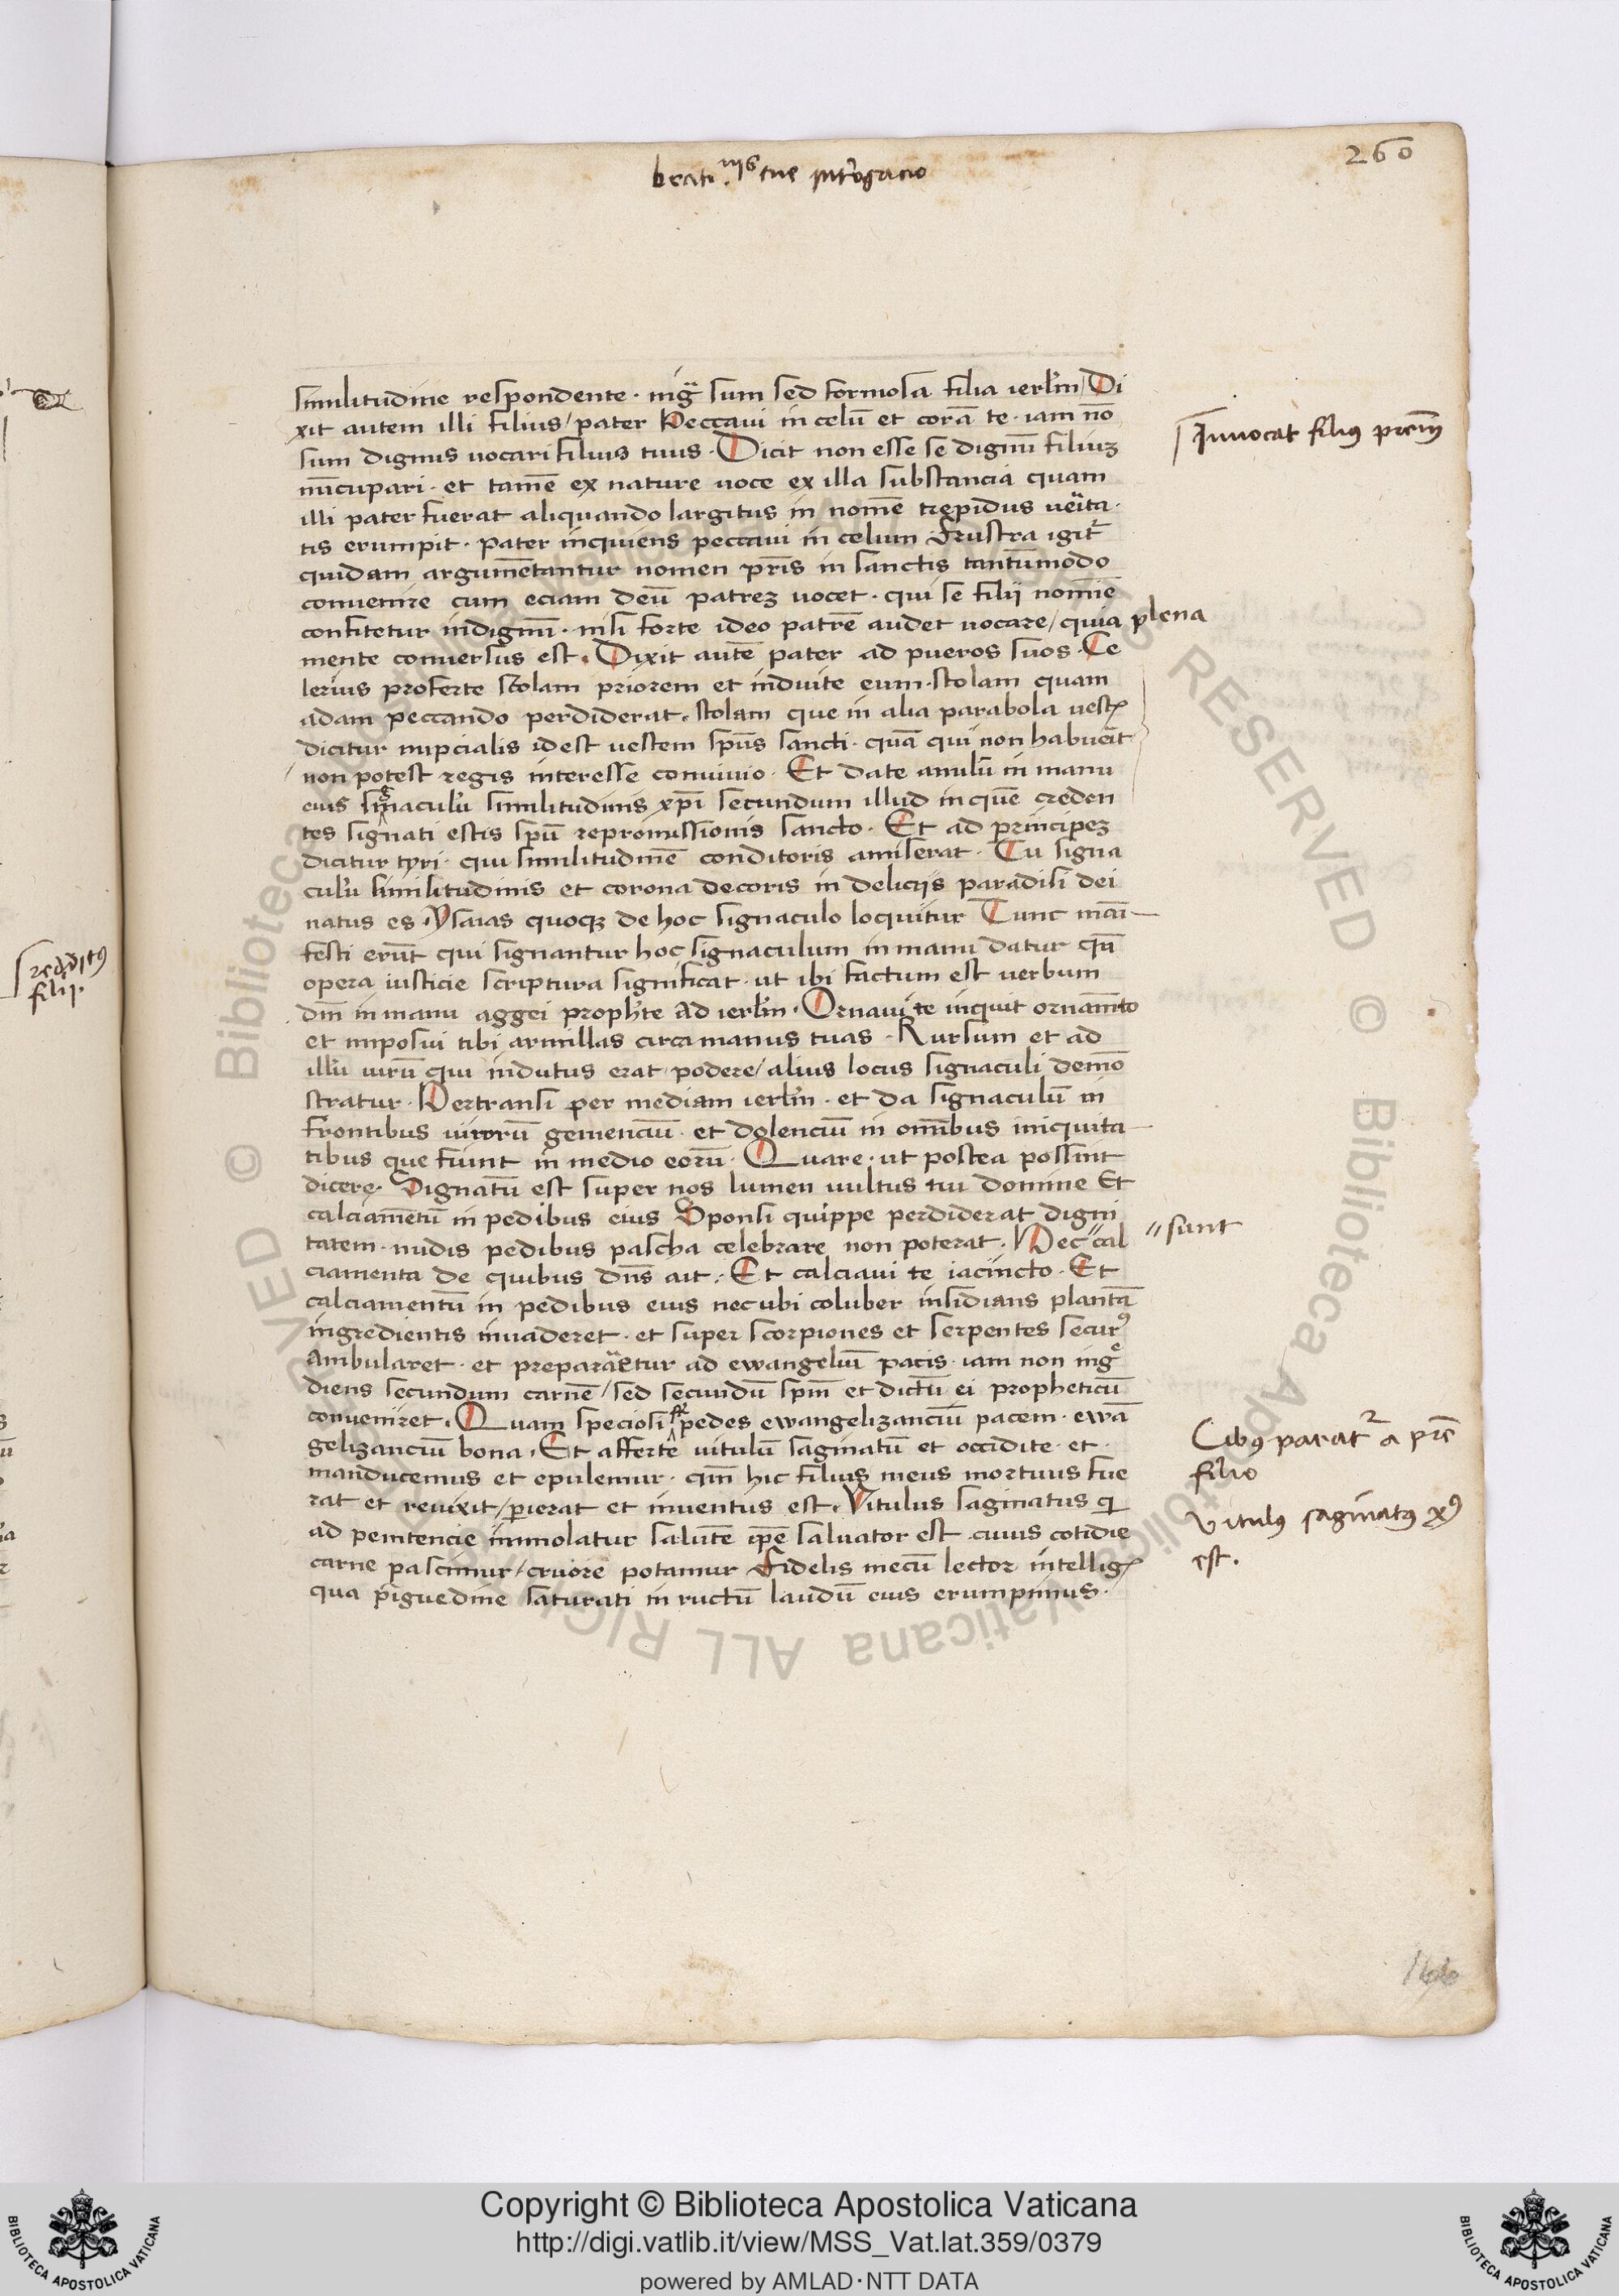 260
beati.nis tue introgacio
similitudine respondente · nigͣ sum sed formosa filia ierlm̄ / Di
xit autem illi filius / pater Peccaui in celū et corā te · iam nō
sum dignus uocari filius tuus · Dicit non esse se dignū filiuꝫ
nūcupari · et tamē ex nature uoce ex illa substancia quam
illi pater fuerat aliquando largitus in nomē trepidus ueïta·
tis erumpit · pater inquiens peccaui in celum frustra igit᷑
quidam argumētantur nomen pr̄is in sanctis tantūmodo
conuenire cum eciam deū patreꝫ uocet · qui se filij nomīe
confitetur indignū · nisi forte ideo patrē audet uocare / quia plena
mente conuersus est · Dixit autē pater ad pueros suos · Ce
lerius proferte stolam priorem et induite eum · stolam quam
adam peccando perdiderat · stolam que in alia parabola uestꝭ
dicitur nupcialis idest uestem sp̄us sancti · quā qui non habuerit
non potest regis interesse conuiuio · Et date anulū in manu
eius signaculū similitudinis xp̄i secundum illud in quē creden
tes signati estis sp̄u repromissionis sancto · Et ad principeꝫ
dicitur tyri · qui similitudinē conditoris amiserat · Tu signa
culū similitudinis et corona decoris in delicijs paradisi dei
natus es · Ysaias quoqꝫ de hoc signaculo loquitur Tunc mani—
festi erūt qui signantur hoc signaculum in manu datur qn̄
opera iusticie scriptura significat · ut ibi factum est uerbum
dn̄i in manu aggei prophēte Ad ierlm̄ · Ornaui te inquit ornamēto
et imposui tibi armillas circa manus tuas · Rursum et ad
illū uirū qui indutus erat podere / alius locus signaculi demō
stratur · Pertransi per mediam ierlm̄ · et da signaculū in
frontibus uirorū gemenciū · et dolenciū in omībus iniquita—
tibus que fiunt in medio eorū · Quare · ut postea possint
dicere · Signatū est super nos lumen uultus tui domine Et
calciamētū in pedibus eius Sponsi quippe perdiderat digni
tatem · nudis pedibus pascha celebrare non poterat · Hec "cal
ciamenta de quibus dn̄s ait · Et calciaui te iacincto · Et
calciamentū in pedibus eius necubi coluber insidians plantā
ingredientis inuaderet · et super scorpiones et serpentes securꝰ
ambularet · et prepararetur ad ewangeliū pacis · iam non ingͤ
diens secundum carnē / sed secundū sp̄m et dictū ei propheticū
conueniret · Quam speciosi pedes ewangelizanciū pacem · ewā
gelizanciū bona · Et afferte uitulū saginatū et occidite · et ·
manducemus et epulemur · qm̄ hic filius meus mortuus fue
rat et reuixit / perierat et inuentus est · Vitulus saginatus qi
ad penitencie immolatur salutē ip̄e saluator est · cuius cotidie
carne pascimur / cruore potamur fidelis mecū lector intelligꝭ
qua piguedine saturati in ructū laudū eius erumpimus ·
Inuocat filiꝰ prem̄
" sunt
Cibꝰ parat᷑ a pr̄e
filio
Vitulꝰ saginatꝰ xꝰ
est.
filij.
Copyright © Biblioteca Apostolica Vaticana
http://digi.vatlib.it/view/MSS_Vat.lat.359/0379
powered by AMLAD·NTT DATA
BIBLIOTECA APOSTOLICA VATICANA
BIBLIOTECA APOSTOLICA VATICANA